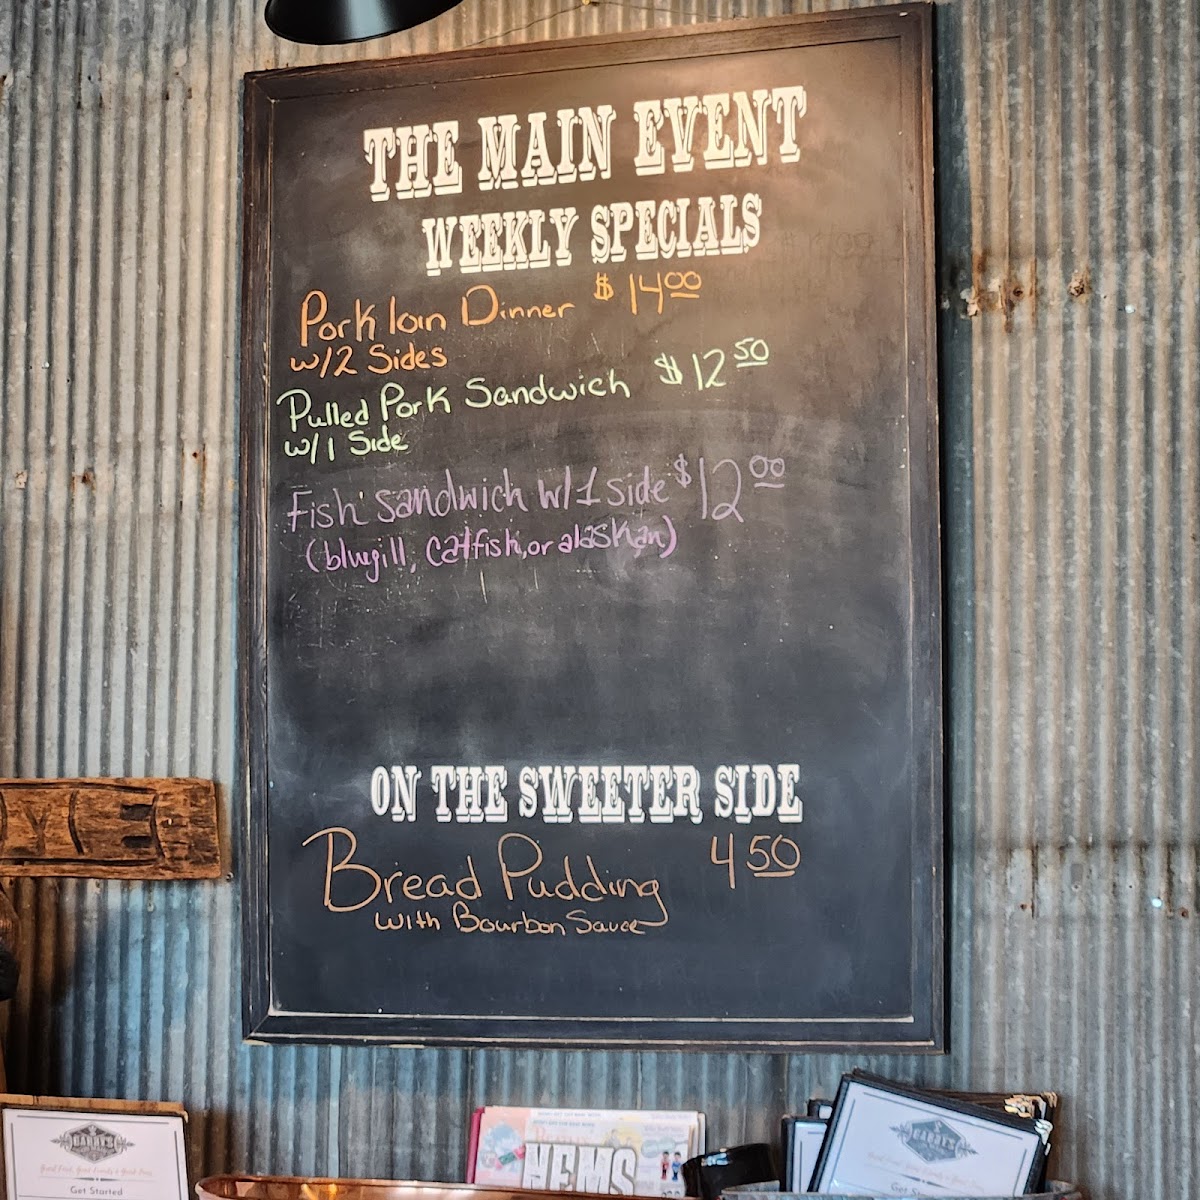 THE MAIN EVENT
WEEKLY SPECIALS
Pork loin Dinner $14.00
w/2 Sides
Pulled Pork Sandwich $12.50
w/1 Side
Fish sandwich w/1 side $12.00
(bluegill, catfish, or alaskan)
ON THE SWEETER SIDE
Bread Pudding 4.50
with Bourbon Sauce
GARRY'S
Good Food, Good Friends & Good Times
Get Started
HEMS
GARRY'S